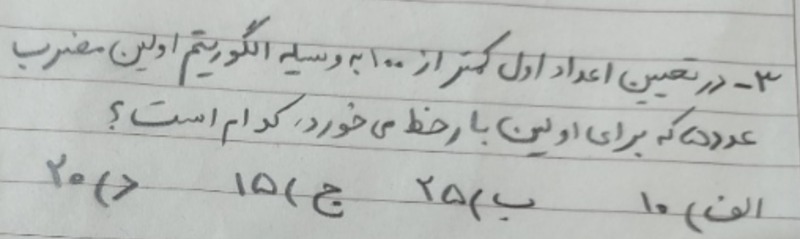 ۳- در تعیین اعداد اول کمتر از ۱۰۰ به وسیله الگوریتم اولین مضرب
عدد ۵ که برای اولین بار خط می خورد، کدام است؟
الف) ۱۰ ب) ۲۵ ج) ۱۵ د) ۲۰